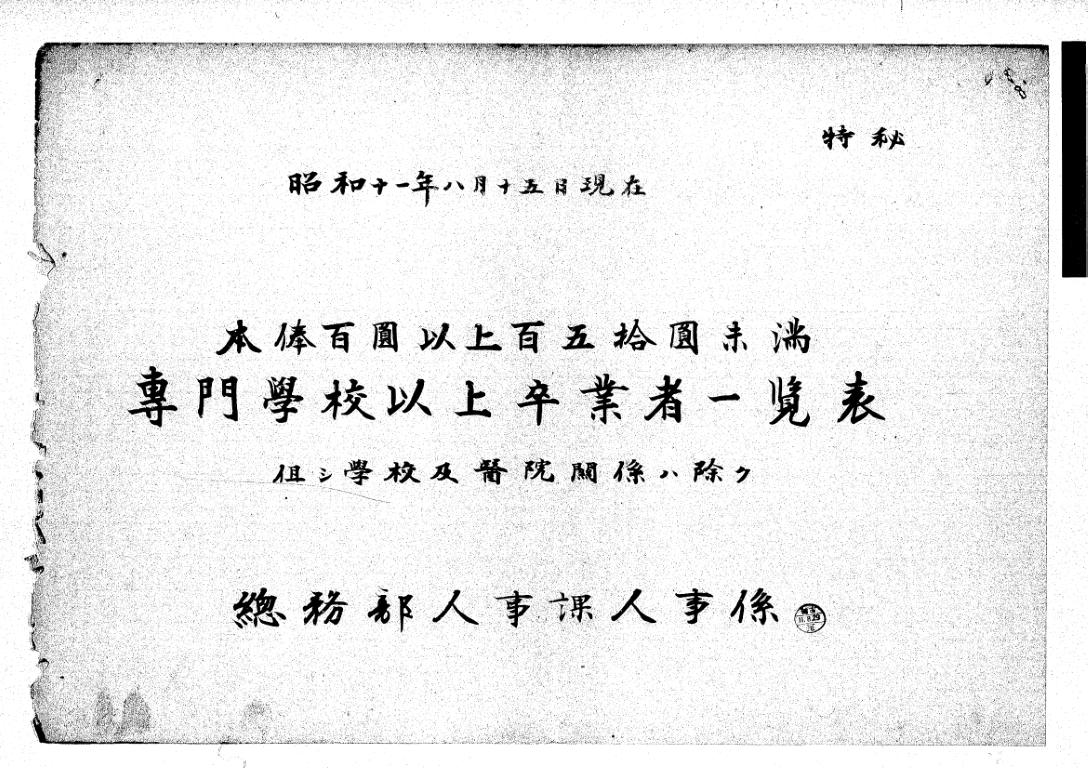 特秘
昭和十一年八月十五日現在
本俸百圓以上百五拾圓未満
專門學校以上卒業者一覧表
但シ學校及醫院關係ハ除ク
總務部人事課人事係
11.8.29